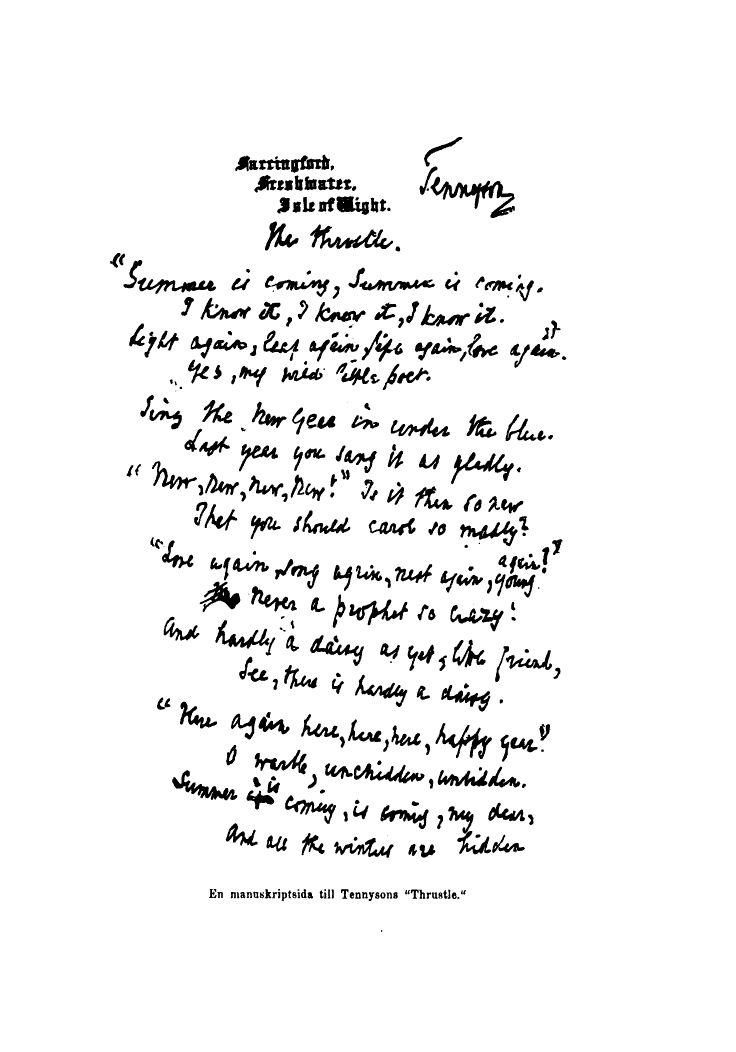 Farringford,
Freshwater,
Isle of Wight.
Tennyson
The Throstle.
"Summer is coming, Summer is coming.
I know it, I know it, I know it.
Light again, leaf again, life again, love again."
Yes, my wild little poet.
Sing the New Year in under the blue.
Last year you sang it as gladly.
"New, new, new, new!" Is it then so new
That you should carol so madly?
"Love again, song again, nest again, young again!"
Never a prophet so crazy!
And hardly a daisy as yet, little friend,
See, there is hardly a daisy.
"Here again here, here, here, happy year"!
O warble, unchidden, unbidden.
Summer is coming, is coming, my dear,
And all the winters are hidden
En manuskriptsida till Tennysons "Thrustle."